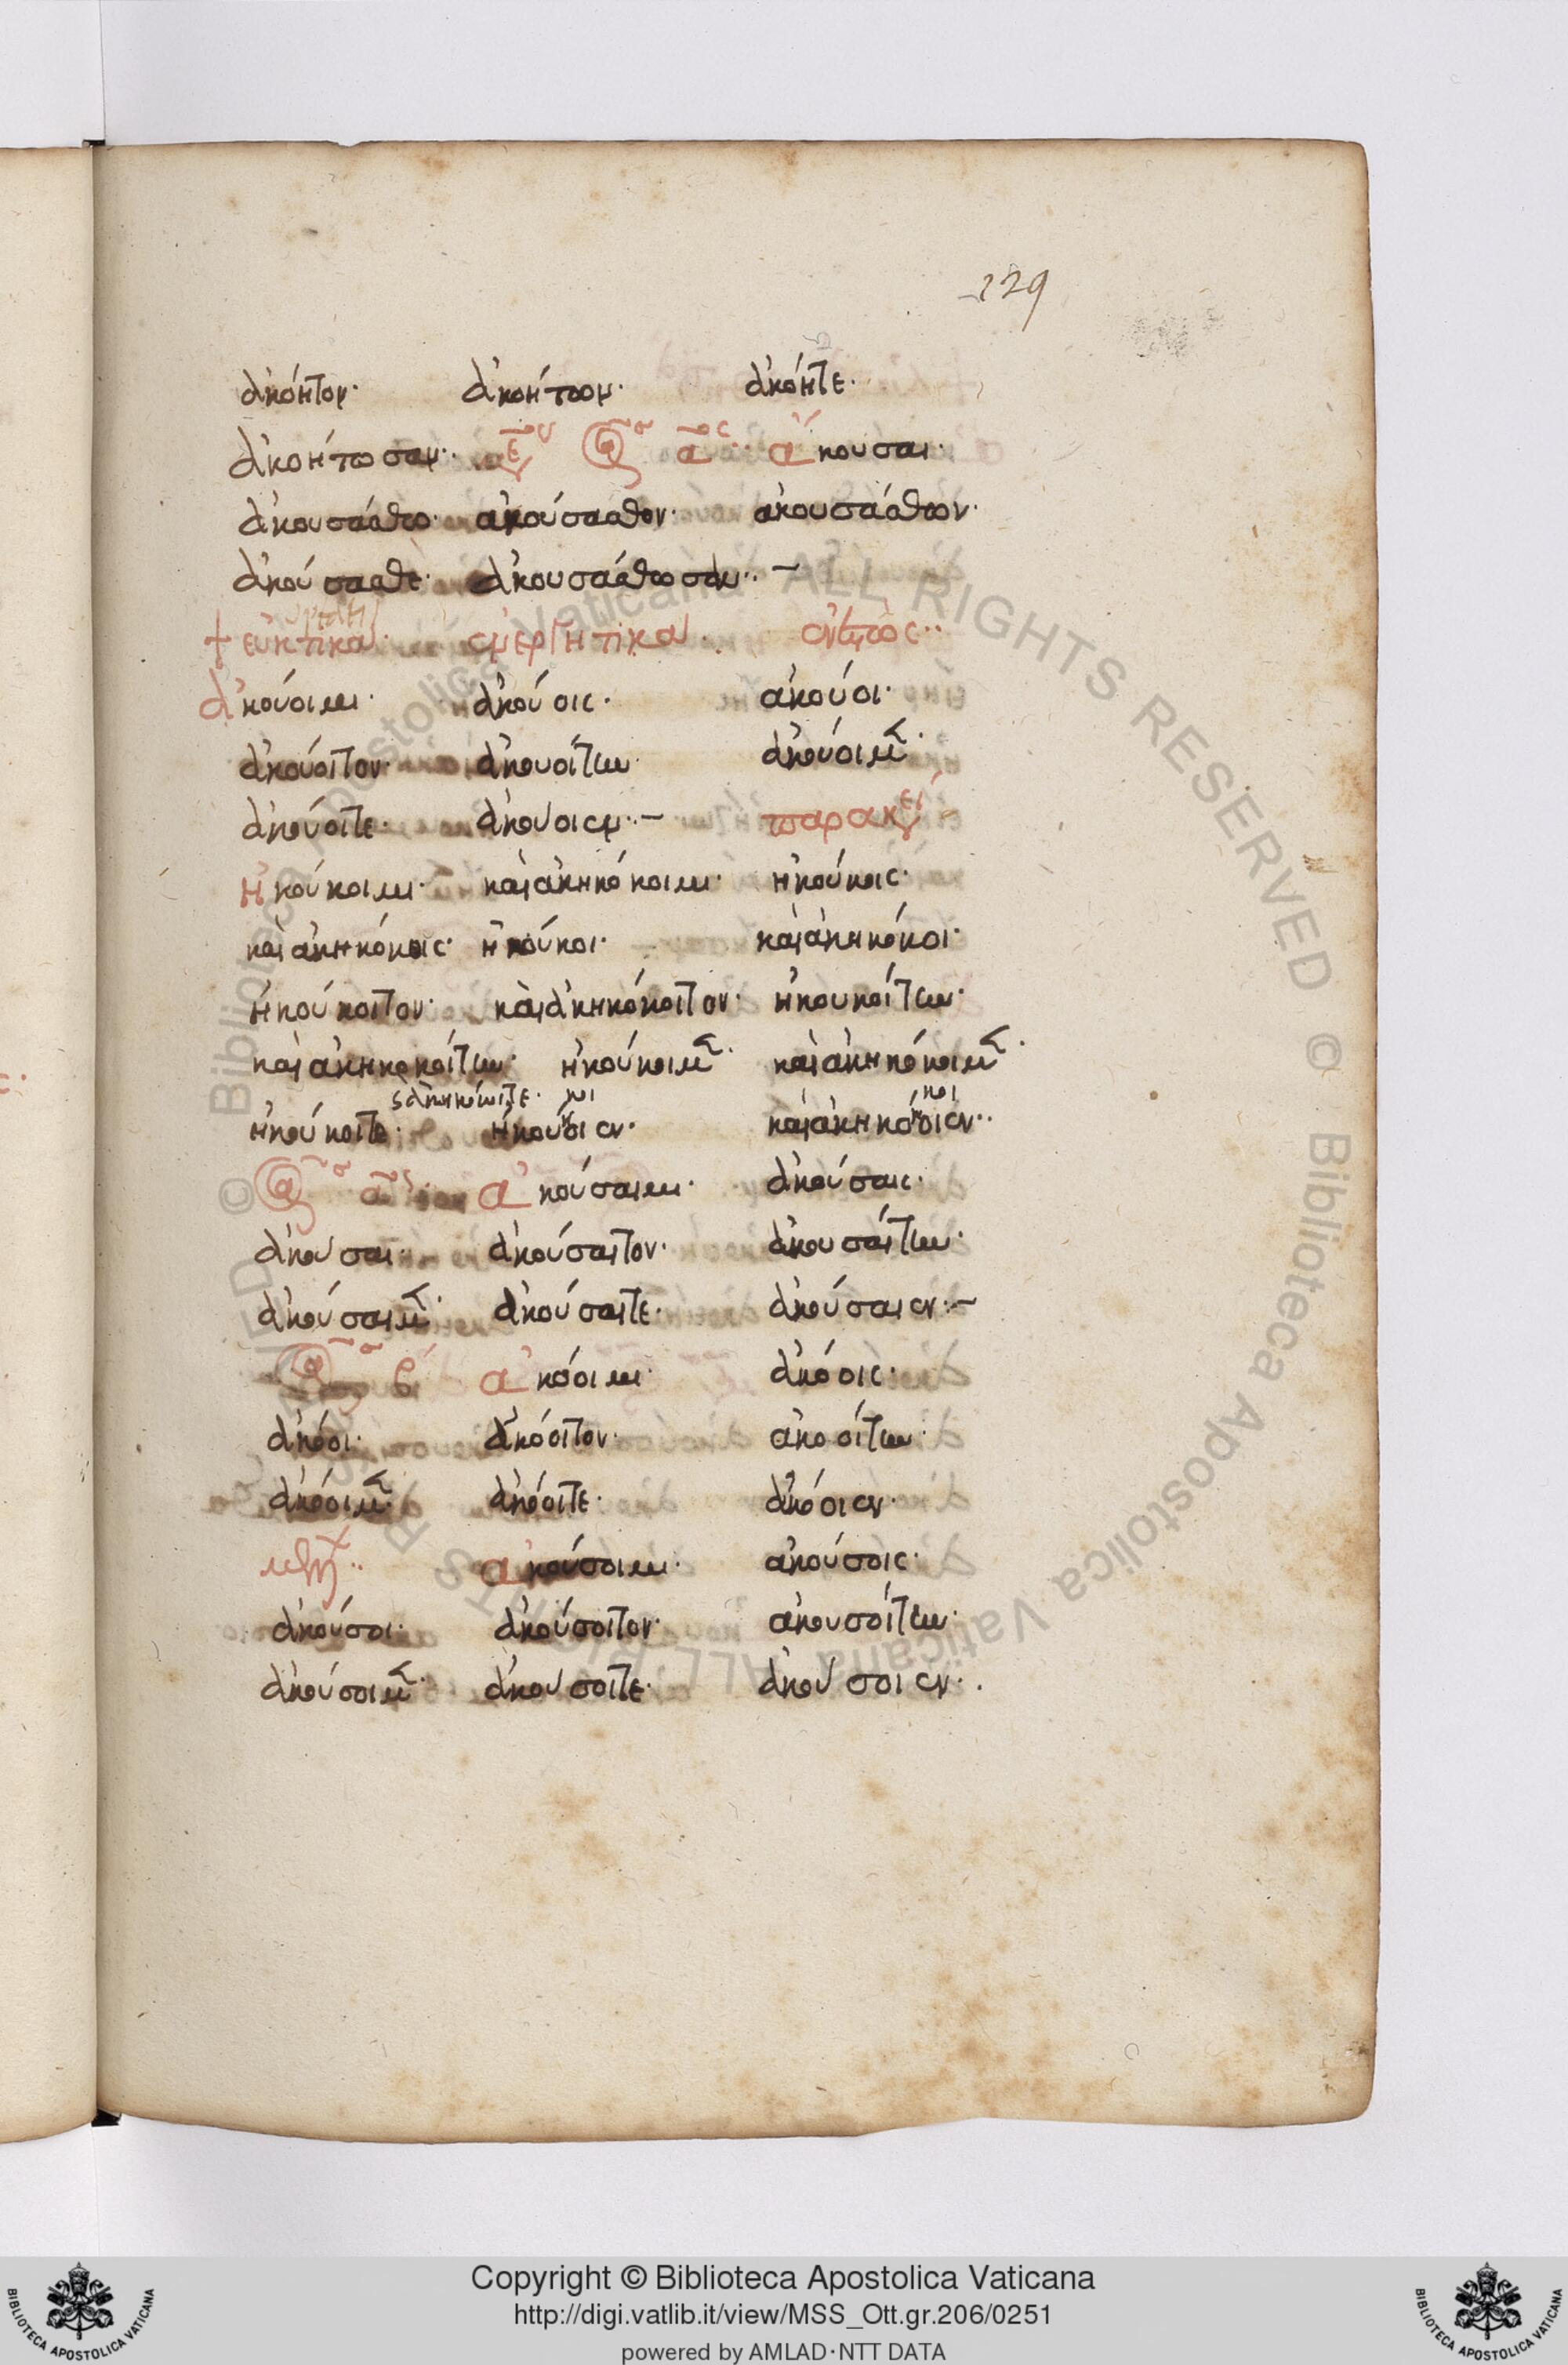 129
ἀκόητον· ἀκοήτωον· ἀκόητε·
ἀκοήτωσαν·· ἀκουσαι·
ἀκουσάσθω· ἀκούσασθον· ἀκουσάσθων·
ἀκούσασθε· ἀκουσάσθωσαν·· –
+ εὐκτικα· ἐνεργητικα· ἐνεστὼς··
ἀκούοιμι· ἀκούοις· ἀκούοι·
ἀκούοιτον· ἀκουοίτην· ἀκούοιμεν·
ἀκούοιτε· ἀκουοιεν·· – παρακεί
ἠκούκοιμι· καὶ ἀκηκόκοιμι· ἠκούκοις·
καὶ ἀκηκόκοις· ἠκούκοι· καὶ ἀκηκόκοι·
ἠκούκοιτον· καὶ ἀκηκόκοιτον· ἠκουκοίτην·
καὶ ἀκηκοκοίτην· ἠκούκοιμεν· καὶ ἀκηκόκοιμεν·
κοι κοι
ἠκούκοιτε· ἠκούοιεν· καὶ ἀκηκόοιεν··
ἀκούσαιμι· ἀκούσαις·
ἀκουσαι· ἀκούσαιτον· ἀκουσαίτην·
ἀκούσαιμεν· ἀκούσαιτε· ἀκούσαιεν·–
β ἀκόοιμι· ἀκόοις·
ἀκόοι· ἀκόοιτον· ἀκοοίτην·
ἀκόοιμεν· ἀκόοιτε· ἀκόοιεν·
μελλ·· ἀκούσοιμι· ἀκούσοις·
ἀκούσοι· ἀκούσοιτον· ἀκουσοίτην·
ἀκούσοιμεν· ἀκουσοιτε· ἀκουσοιεν·
Copyright © Biblioteca Apostolica Vaticana
http://digi.vatlib.it/view/MSS_Ott.gr.206/0251
powered by AMLAD·NTT DATA
BIBLIOTECA APOSTOLICA VATICANA
BIBLIOTECA APOSTOLICA VATICANA
© Biblioteca Apostolica Vaticana ALL RIGHTS RESERVED © Biblioteca Apostolica Vaticana ALL RIGHTS RESERVED